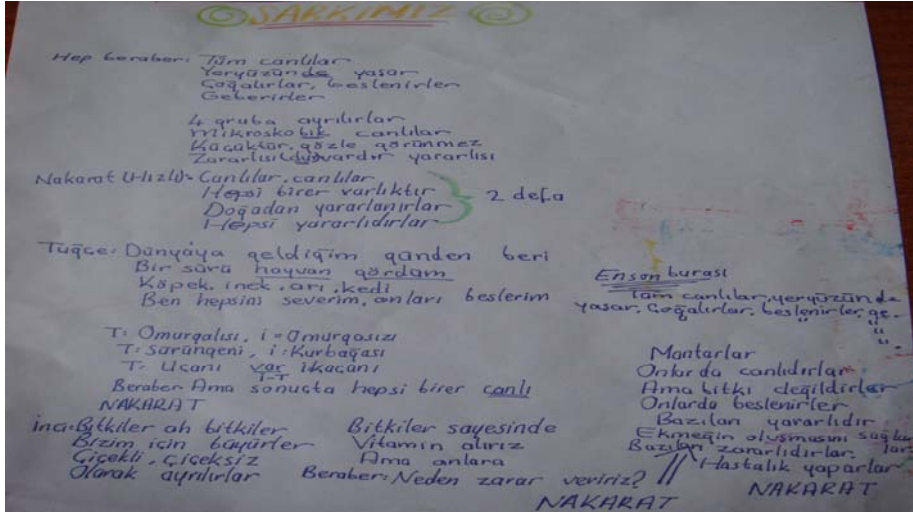 ŞARKIMIZ
Hep beraber: Tüm canlılar
Yeryüzünde yaşar
Çoğalırlar, beslenirler
Geberirler
4 gruba ayrılırlar
Mikroskobik canlılar
Küçüktür, gözle görünmez
Zararlısı vardır yararlısı
Nakarat (Hızlı): Canlılar, canlılar
Hepsi birer varlıktır
Doğadan yararlanırlar
Hepsi yararlıdırlar
2 defa
Tuğçe: Dünyaya geldiğim günden beri
Bir sürü hayvan gördüm
Köpek, inek, arı, kedi
Ben hepsini severim, onları beslerim
T: Omurgalısı, i = Omurgasızı
T: Sürüngeni, i: Kurbağası
T: Uçanı var i kaçanı
i-T
Beraber: Ama sonuçta hepsi birer canlı
NAKARAT
inci: Bitkiler ah bitkiler
Bizim için büyürler
Çiçekli, çiçeksiz
Olarak ayrılırlar
Bitkiler sayesinde
Vitamin alırız
Ama onlara
Beraber: Neden zarar veririz?
NAKARAT
En son burası
Tüm canlılar, yeryüzünde
yaşar, Çoğalırlar, beslenirler, ge..
Mantarlar
Onlar da canlıdırlar
Ama bitki değildirler
Onlarda beslenirler
Bazıları yararlıdır
Ekmeğin oluşmasını sağlarlar
Bazıları zararlıdırlar
Hastalık yaparlar
NAKARAT